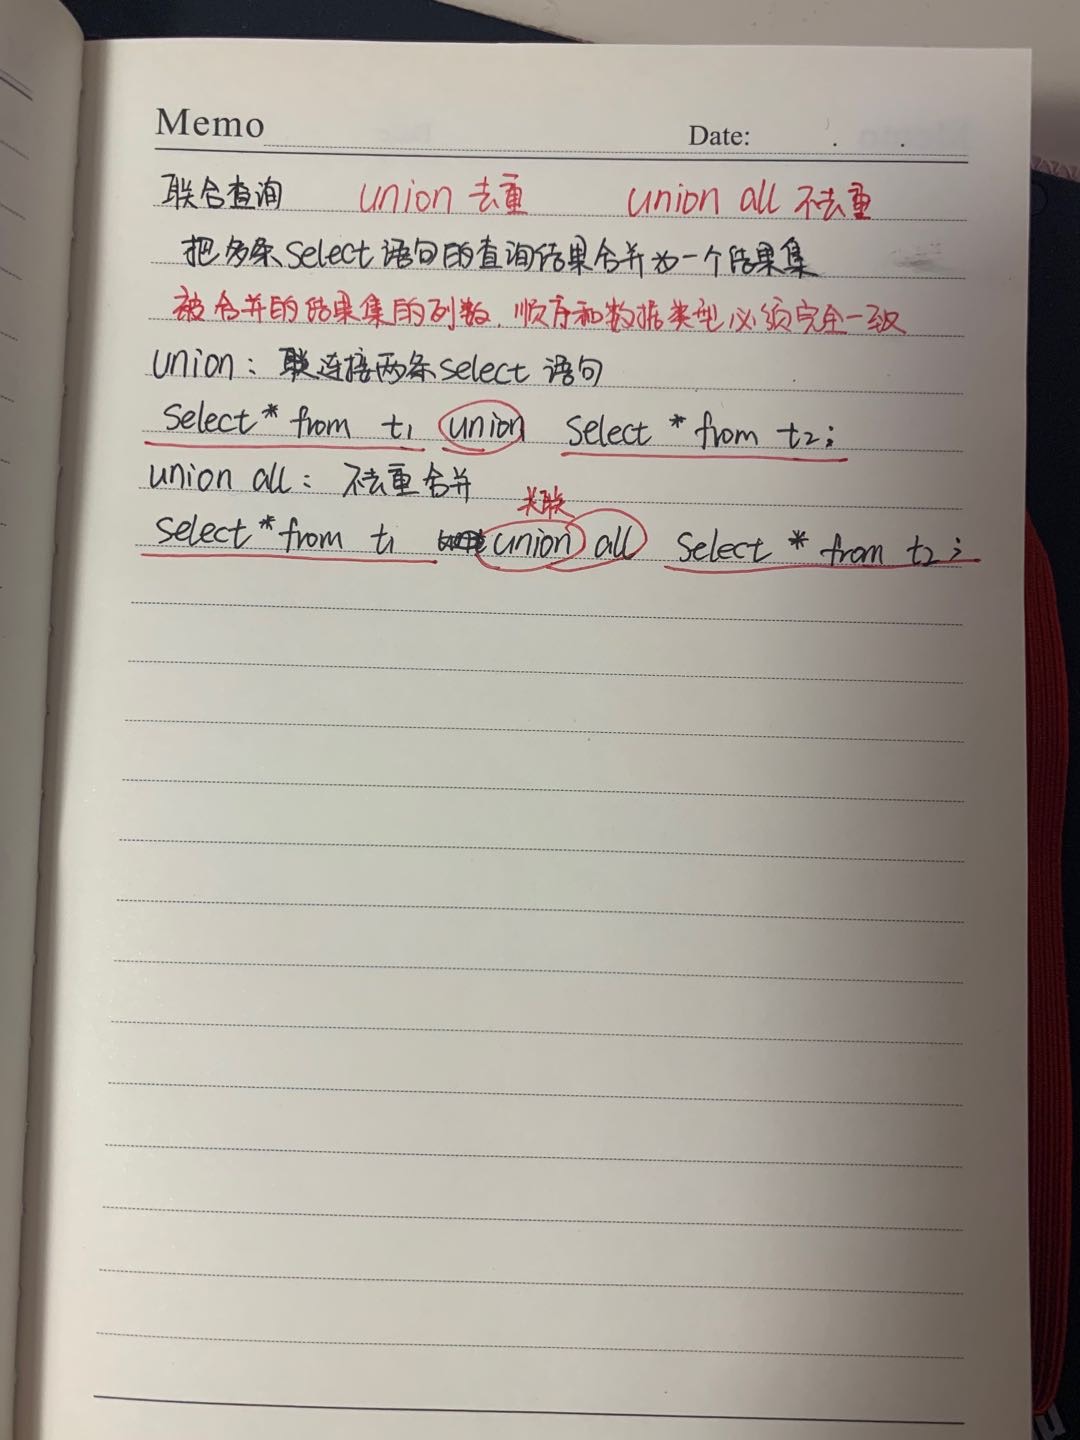 Memo
Date: . .
联合查询 union 去重 union all 不去重
把多条select语句的查询结果合并为一个结果集
被合并的结果集的列数、顺序和数据类型必须完全一致
union: 联连接两条select 语句
select * from t1 union select * from t2;
union all: 不去重合并
关联
select * from t1 union all select * from t2;